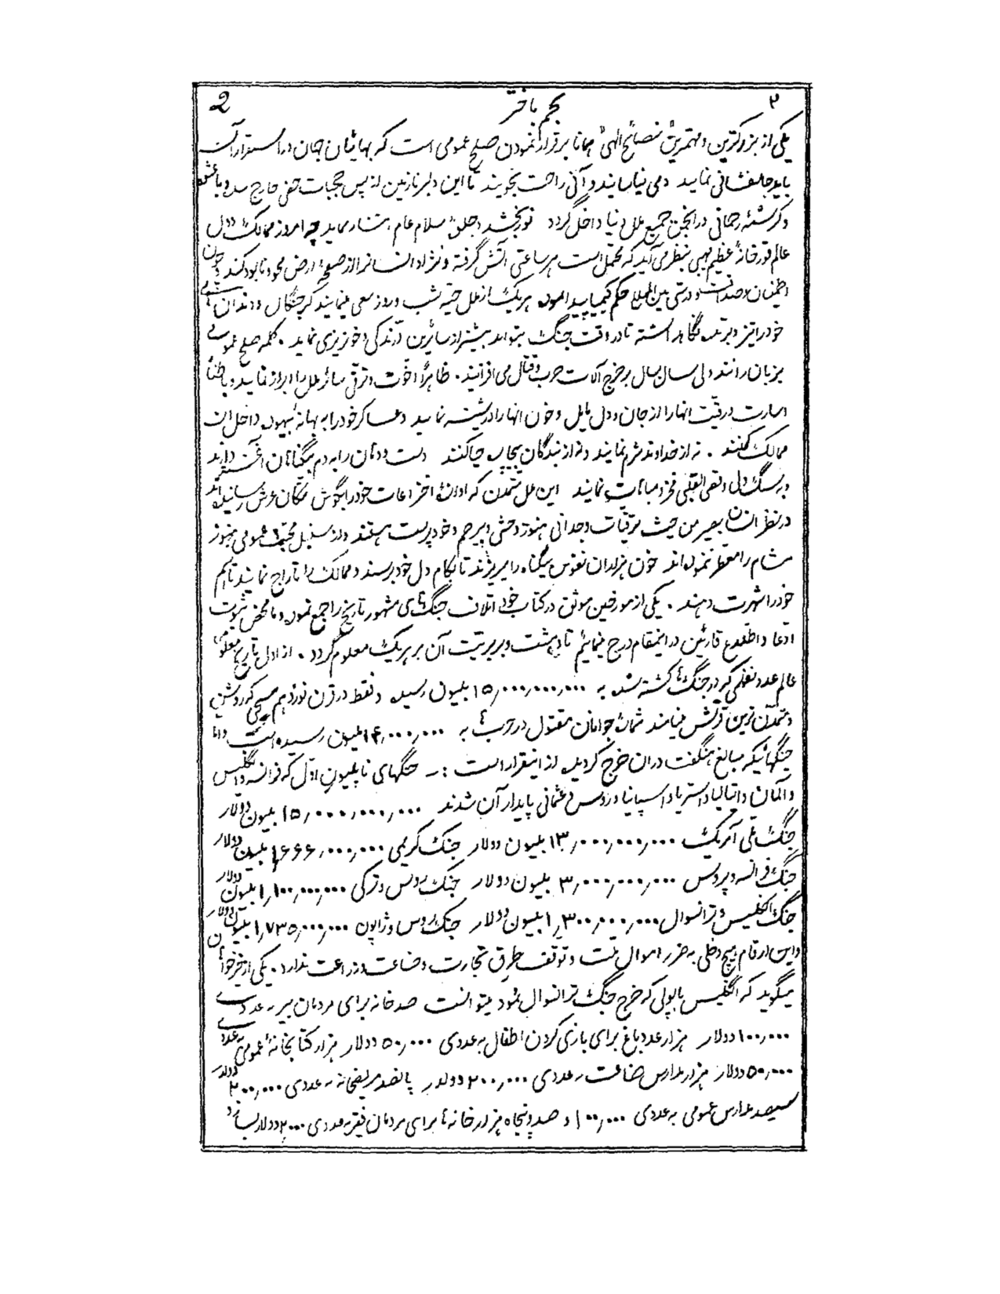 ۲ نجم باختر 2
یکی از بزرگترین و مهمترین نصائح الهی همانا برقرار نمودن صلح عمومی است که بهائیان جهان در استقرار آن
باید جانفشانی نمایند و می نیاسایند و آنی راحت نجویند تا این دلبر نازنین از پس حجبات خفی خارج شده و با عشوه
و کرشمهٔ رحمانی در انجمن جمیع ملل دنیا داخل گردد نور بخشد و خلق سلام عام نماید چه امروز ممالک و دول
عالم قورخانهٔ عظیم مهیبی بنظر می آید که محتمل است هر ساعتی آتش گرفته و نژاد انسان را از صفحهٔ ارض محو و نابود کند
اطمینان و صداقت و درستی بین المللی حکم کیمیا پیدا نموده هر یک از ملل حیّه شب و روز سعی مینمایند که چنگال و دندان
خود را تیز و برنده نگاه داشته تا در وقت جنگ بتواند بیشتر از سایرین درندگی و خونریزی نماید . کلمه صلح عمومی
بزبان رانند ولی سال بسال بر خرج آلات حرب و قتال می افزایند . ظاهراً اخوت و ترقی سائر ملل را ابراز نمایند و باطناً
اسارت و رقیّت آنها را از جان و دل مایل و خون آنها را در شیشه نمایند و عساکر خود را به بهانهٔ بیهوده داخل آن
ممالک کنند . نه از خداوند شرم نمایند و نه از بندگان حیا کنند دست و دهان را به دم بیگناهان آغشته دارند
و به سنگ دلی و قسی القلبی فخر و مباهات نمایند این ملل متمدن که آوازهٔ اختراعات خود را بگوش سکان عرش رسانیده اند
در نظر انسان بصیر من حیث ترقیات وجدانی هنوز وحشی و بیرحم و خودپرست هستند و از سنبل محبت عمومی هنوز
مشام را معطر ننموده اند خون هزاران نفوس بیگناه را میریزند تا بکام دل خود برسند و ممالک را تاراج نمایند تا اسم
خود را شهرت دهند . یکی از مورخین موثق در کتاب خود اتلاف جنگ های مشهور تاریخ را جمع نموده و ما محض ثبوت
ادعا و اطلاع قارئین در اینمقام درج مینمائیم تا دهشت و بربریت آن بر هر یک معلوم گردد . از اول تاریخ معلوم
عالم عدد نفوسی که در جنگ ها کشته شده به ۱۵٫۰۰۰٫۰۰۰٫۰۰۰ بلیون رسیده و فقط در قرن نوزدهم مسیحی که روشن
و متمدن ترین قرنش مینامند شمارهٔ جوانان مقتول در حرب ها به ۱۴٫۰۰۰٫۰۰۰ ملیون رسیده است و اما
جنگهائیکه مبالغ هنگفت در آن خرج گردیده از اینقرار است :ـ جنگهای ناپلیون اول که فرانسه و انگلیس
و آلمان و ایتالیا و استریا و اسپانیا و روس و عثمانی پایدار آن شدند ۱۵٫۰۰۰٫۰۰۰٫۰۰۰ بلیون دولار
جنگ ملی آمریک ۱۳٫۰۰۰٫۰۰۰٫۰۰۰ بلیون دولار جنگ کریمی ۱٫۶۶۶٫۰۰۰٫۰۰۰ بلیون دولار
جنگ فرانسه و پروس ۳٫۰۰۰٫۰۰۰٫۰۰۰ بلیون دولار جنگ روس و ترکی ۱٫۱۰۰٫۰۰۰٫۰۰۰ بلیون دولار
جنگ انگلیس و ترانسوال ۱٫۳۰۰٫۰۰۰٫۰۰۰ بلیون دولار جنگ روس و ژاپون ۱٫۷۳۵٫۰۰۰٫۰۰۰ بلیون دولار
و این ارقام هیچ دخلی به ضرر اموال ملت و توقف طرق تجارت و صناعت و زراعت ندارد . یکی از خیر خواهان
میگوید که انگلیس با پولی که خرج جنگ ترانسوال نمود میتوانست صد خانه برای مردمان پیر به عددی
۱۰۰٫۰۰۰ دولار هزار عدد باغ برای بازی کردن اطفال به عددی ۵۰٫۰۰۰ دولار هزار کتابخانهٔ عمومی به عددی
۵۰٫۰۰۰ دولار هزار مدارس صناعت به عددی ۲۰۰٫۰۰۰ دولار پانصد مریضخانه به عددی ۲۰۰٫۰۰۰ دولار
سیصد مدارس عمومی به عددی ۱۰۰٫۰۰۰ و صد و پنجاه هزار خانه ها برای مردمان فقیر به عددی ۲۰۰۰ دولار بسازد